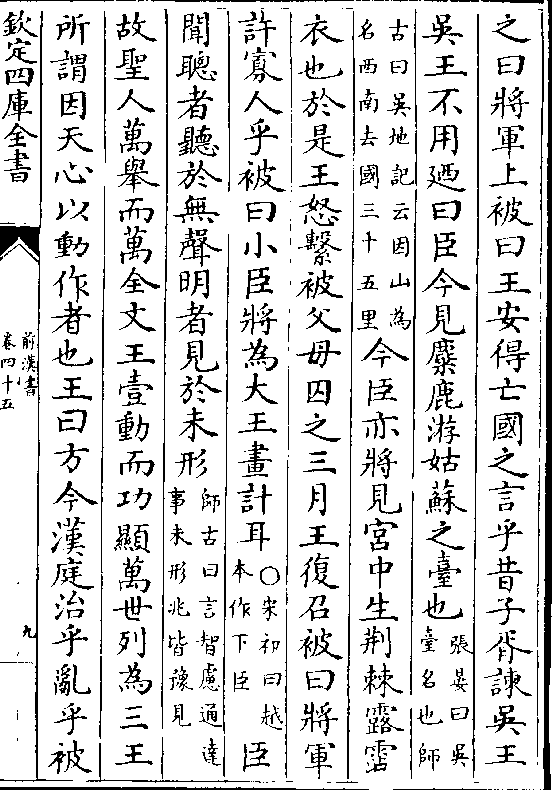 之曰將軍上被曰王安得亡國之言乎昔子胥諫吳王
吳王不用廼曰臣今見麋鹿游姑蘇之臺也張晏曰吳臺名也師
古曰吳地記云因山為名西南去國三十五里今臣亦將見宮中生荆棘露霑
衣也於是王怒繫被父母囚之三月王復召被曰將軍
許寡人乎被曰小臣將為大王畫計耳○宋祁曰越本作下臣臣
聞聰者聽於無聲明者見於未形師古曰言智慮通達事未形兆皆豫見
故聖人萬舉而萬全文王壹動而功顯萬世列為三王
所謂因天心以動作者也王曰方今漢庭治乎亂乎被
欽定四庫全書
前漢書
卷四十五
九